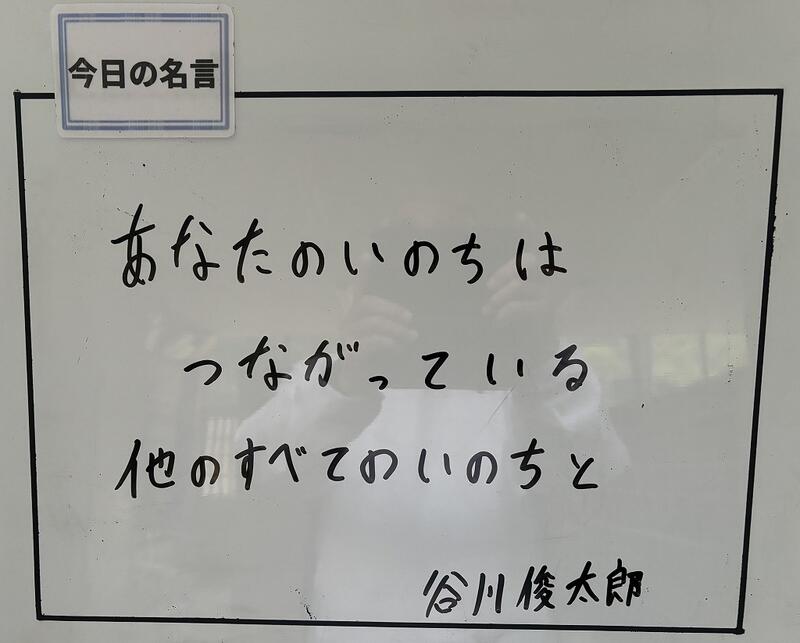 今日の名言
あなたのいのちは
つながっている
他のすべてのいのちと
谷川俊太郎